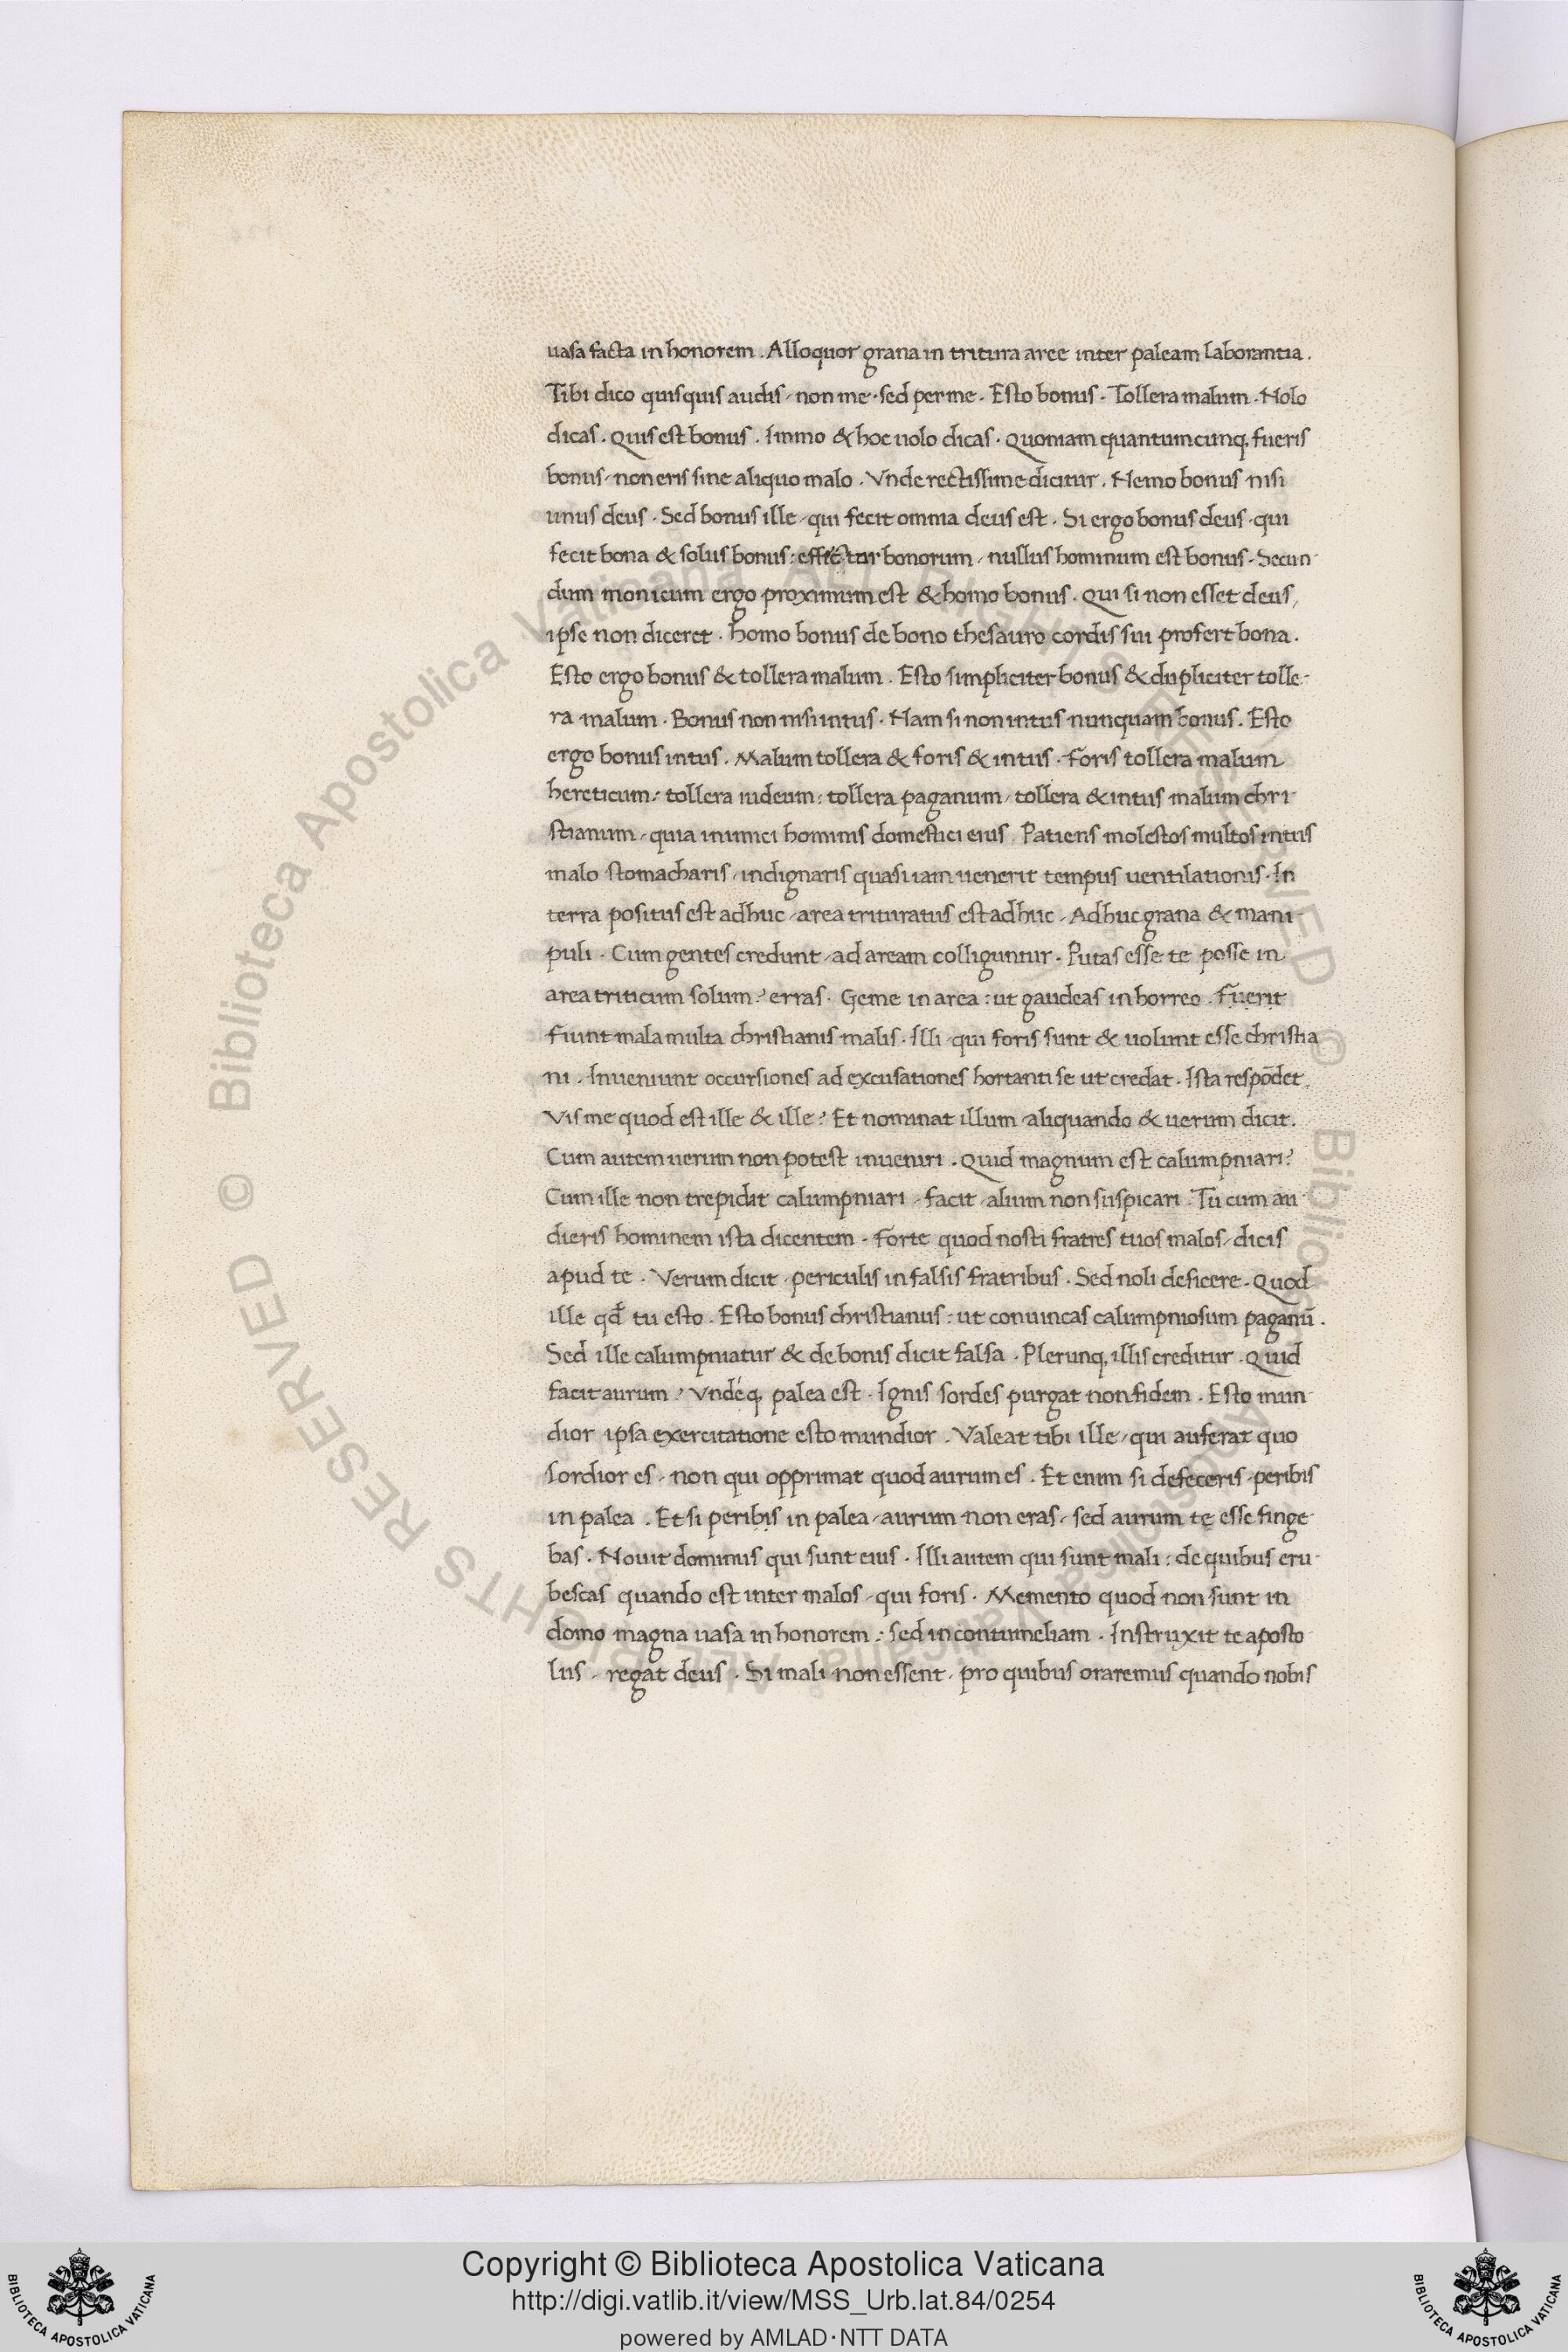 uasa facta in honorem. Alloquor grana in tritura aree inter paleam laborantia.
Tibi dico quisquis audis, non me, sed per me. Esto bonus. Tollera malum. Nolo
dicas. Quis est bonus. Immo & hoc uolo dicas. Quoniam quantumcunq, fueris
bonus, non eris sine aliquo malo. Vnde rectissime dicitur. Nemo bonus nisi
unus deus. Sed bonus ille, qui fecit omnia deus est. Si ergo bonus deus, qui
fecit bona & solus bonus: bonorum, nullus hominum est bonus. Secun-
dum monicum ergo proximum est & homo bonus. Qui si non esset deus,
ipse non diceret. homo bonus de bono thesauro cordis sui profert bona.
Esto ergo bonus & tollera malum. Esto simpliciter bonus & dupliciter tolle-
ra malum. Bonus non nisi intus. Nam si non intus nunquam bonus. Esto
ergo bonus intus. Malum tollera & foris & intus. Foris tollera malum
hereticum: tollera iudeum: tollera paganum, tollera & intus malum chri-
stianum, quia inimici hominis domestici eius. Patiens molestos multos intus
malo stomacharis, indignaris quasi iam uenerit tempus uentilationis. In
terra positus est adhuc, area trituratus est adhuc. Adhuc grana & mani-
puli. Cum gentes credunt, ad aream colliguntur. Putas esse te posse in
area triticum solum? erras. Geme in area: ut gaudeas in horreo. Fuerit
fiunt mala multa christianis malis. Illi qui foris sunt & uolunt esse christia
ni. Inueniunt occursiones ad excusationes hortanti se ut credat. Ista respõdet.
Vis me quod est ille & ille? Et nominat illum aliquando & uerum dicit.
Cum autem uerum non potest inueniri. Quid magnum est calumpniari?
Cum ille non trepidat calumpniari, facit alium non suspicari. Tu cum au
dieris hominem ista dicentem. Forte quod nosti fratres tuos malos, dicis
apud te. Verum dicit, periculis in falsis fratribus. Sed noli deficere. Quod
ille qđ tu esto. Esto bonus christianus: ut conuincas calumpniosum paganũ.
Sed ille calumpniatur & de bonis dicit falsa. Plerunq, illis creditur. Quid
facit aurum? Vndeq, palea est. Ignis sordes purgat non fidem. Esto mun
dior ipsa exercitatione esto mundior. Valeat tibi ille, qui auferat quo
sordior es, non qui opprimat quod aurum es. Et enim si defeceris, peribis
in palea. Et si peribis in palea, aurum non eras, sed aurum te esse finge
bas. Nouit dominus qui sunt eius. Illi autem qui sunt mali: de quibus eru-
bescas quando est inter malos, qui foris. Memento quod non sunt in
domo magna uasa in honorem: sed in contumeliam. Instruxit te aposto
lus, regat deus. Si mali non essent, pro quibus oraremus quando nobis
© Biblioteca Apostolica Vaticana. ALL RIGHTS RESERVED © Biblioteca Apostolica Vaticana. ALL RIGHTS RESERVED
Copyright © Biblioteca Apostolica Vaticana
http://digi.vatlib.it/view/MSS_Urb.lat.84/0254
powered by AMLAD·NTT DATA
BIBLIOTECA APOSTOLICA VATICANA
BIBLIOTECA APOSTOLICA VATICANA